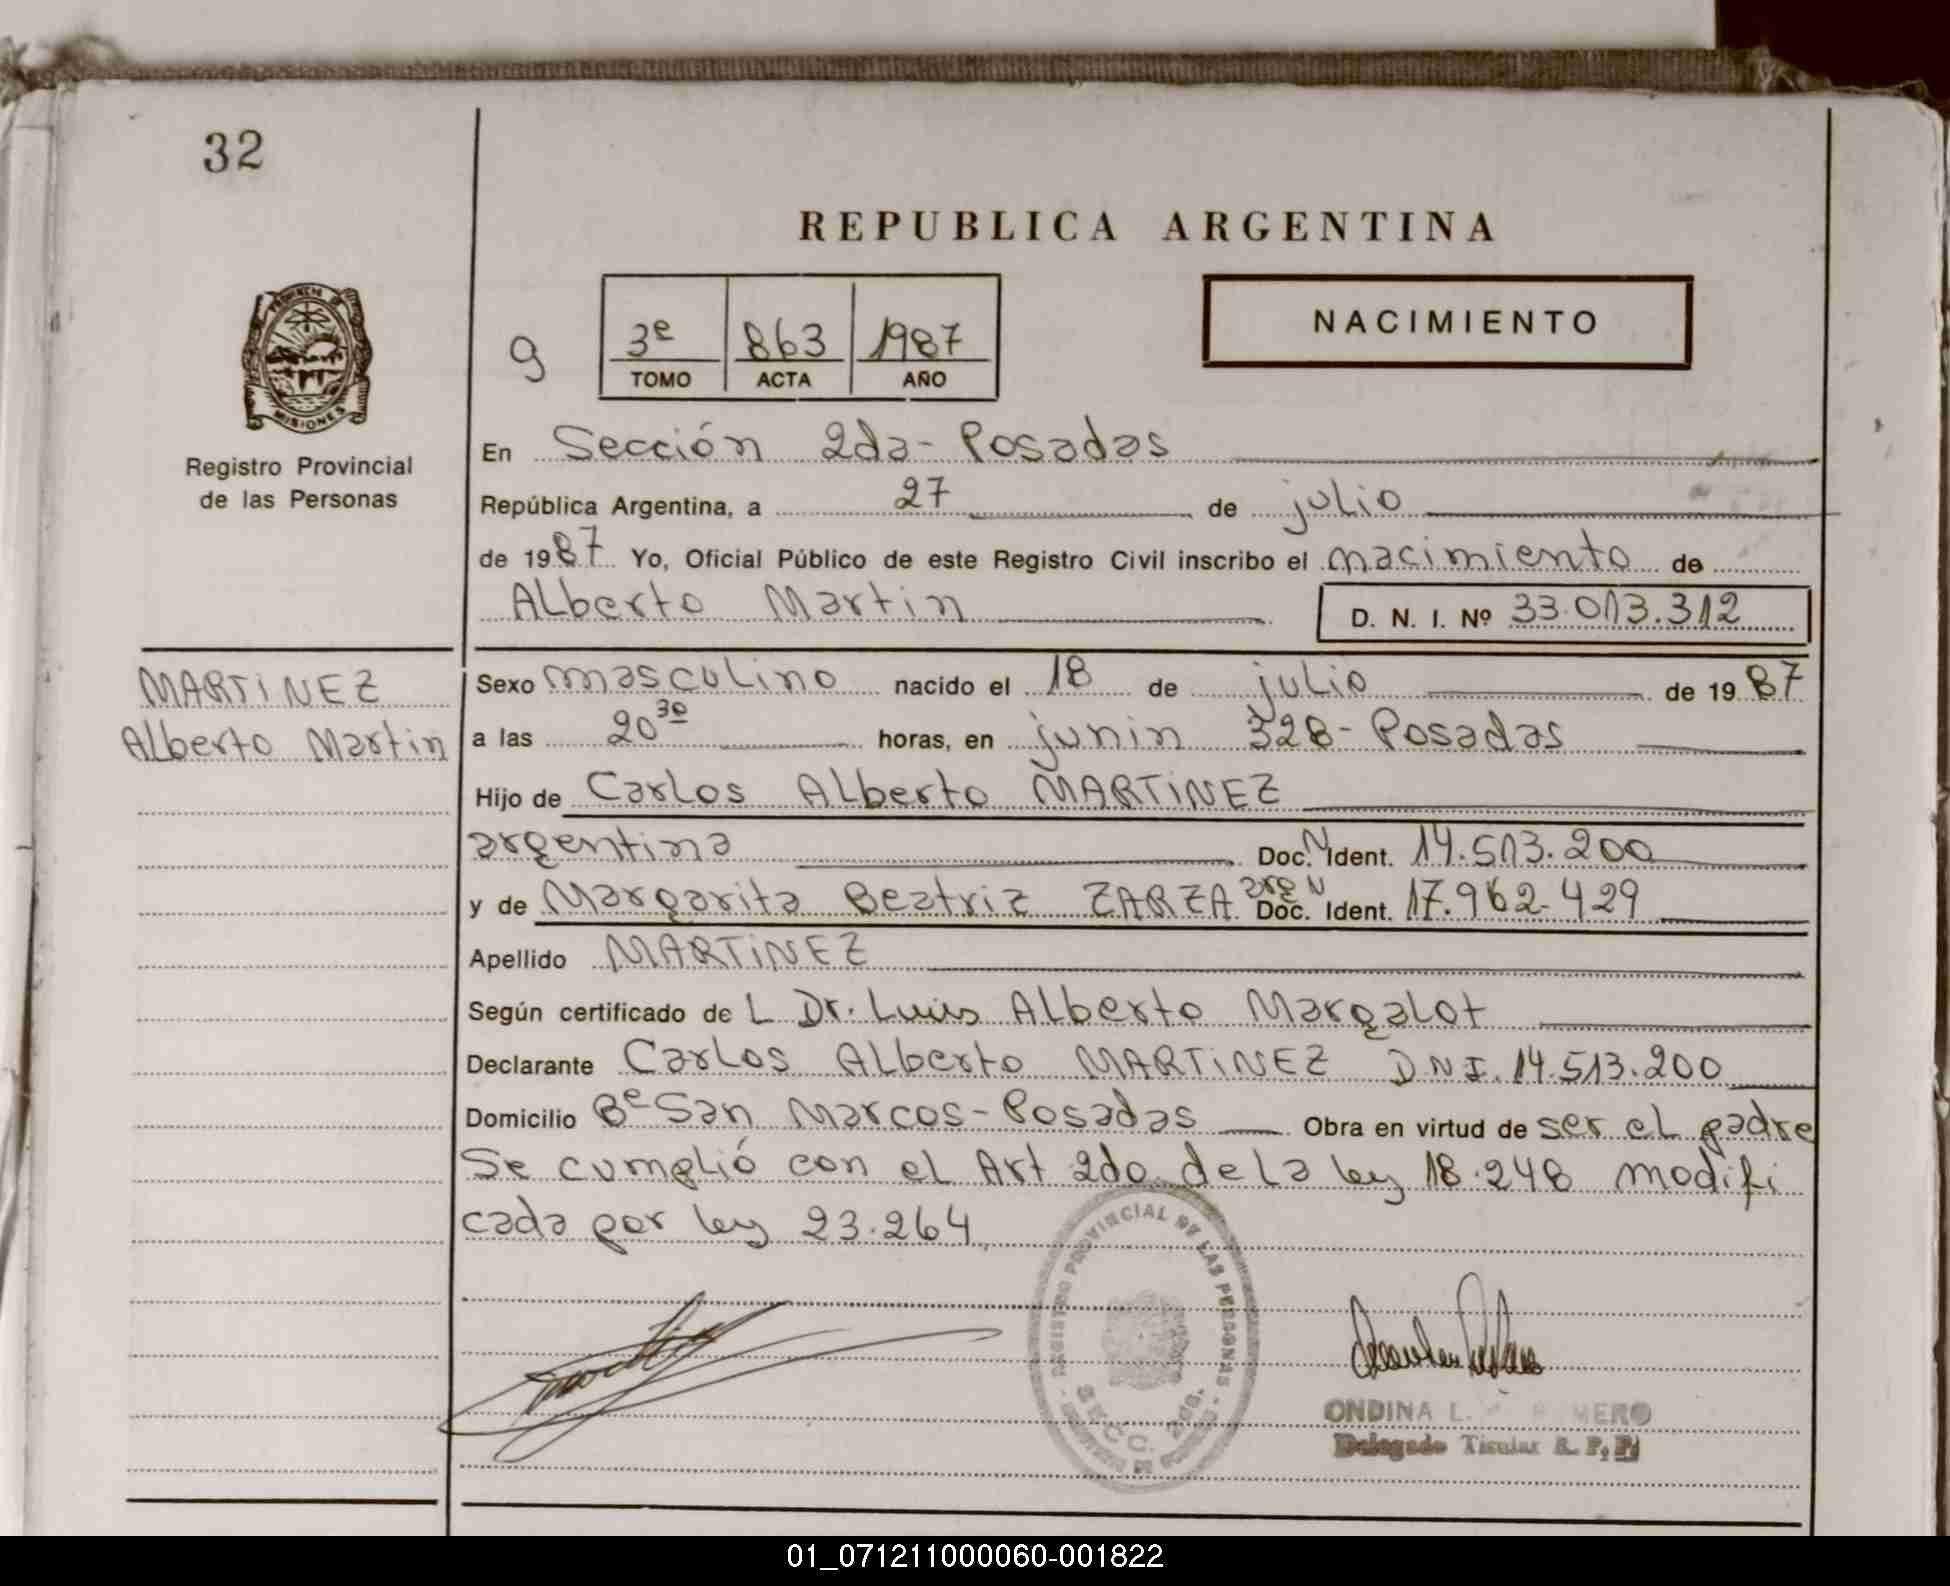 32
REPUBLICA ARGENTINA
PROVINCIA DE
MISIONES
Registro Provincial
de las Personas
9
3º 863 1987
TOMO ACTA AÑO
NACIMIENTO
En Sección 2da - Posadas
República Argentina, a 27 de julio
de 1987 Yo, Oficial Público de este Registro Civil inscribo el nacimiento de
Alberto Martin D. N. I. Nº 33.013.312
MARTINEZ
Alberto Martin
Sexo masculino nacido el 18 de julio de 1987
a las 20³⁰ horas, en junin 328 - Posadas
Hijo de Carlos Alberto MARTINEZ
argentina Doc. N Ident. 14.513.200
y de Margarita Beatriz ZARZA arg N Doc. Ident. 17.962.429
Apellido MARTINEZ
Según certificado de L Dr. Luis Alberto Margalot
Declarante Carlos Alberto MARTINEZ D.N.I. 14.513.200
Domicilio Bº San Marcos - Posadas Obra en virtud de ser el padre
Se cumplió con el Art 2do de la ley 18.248 modifi
cada por ley 23.264
REGISTRO PROVINCIAL DE LAS PERSONAS
SECC. 2da.
ONDINA L.
Delegado Titular R. P. P.
01_071211000060-001822